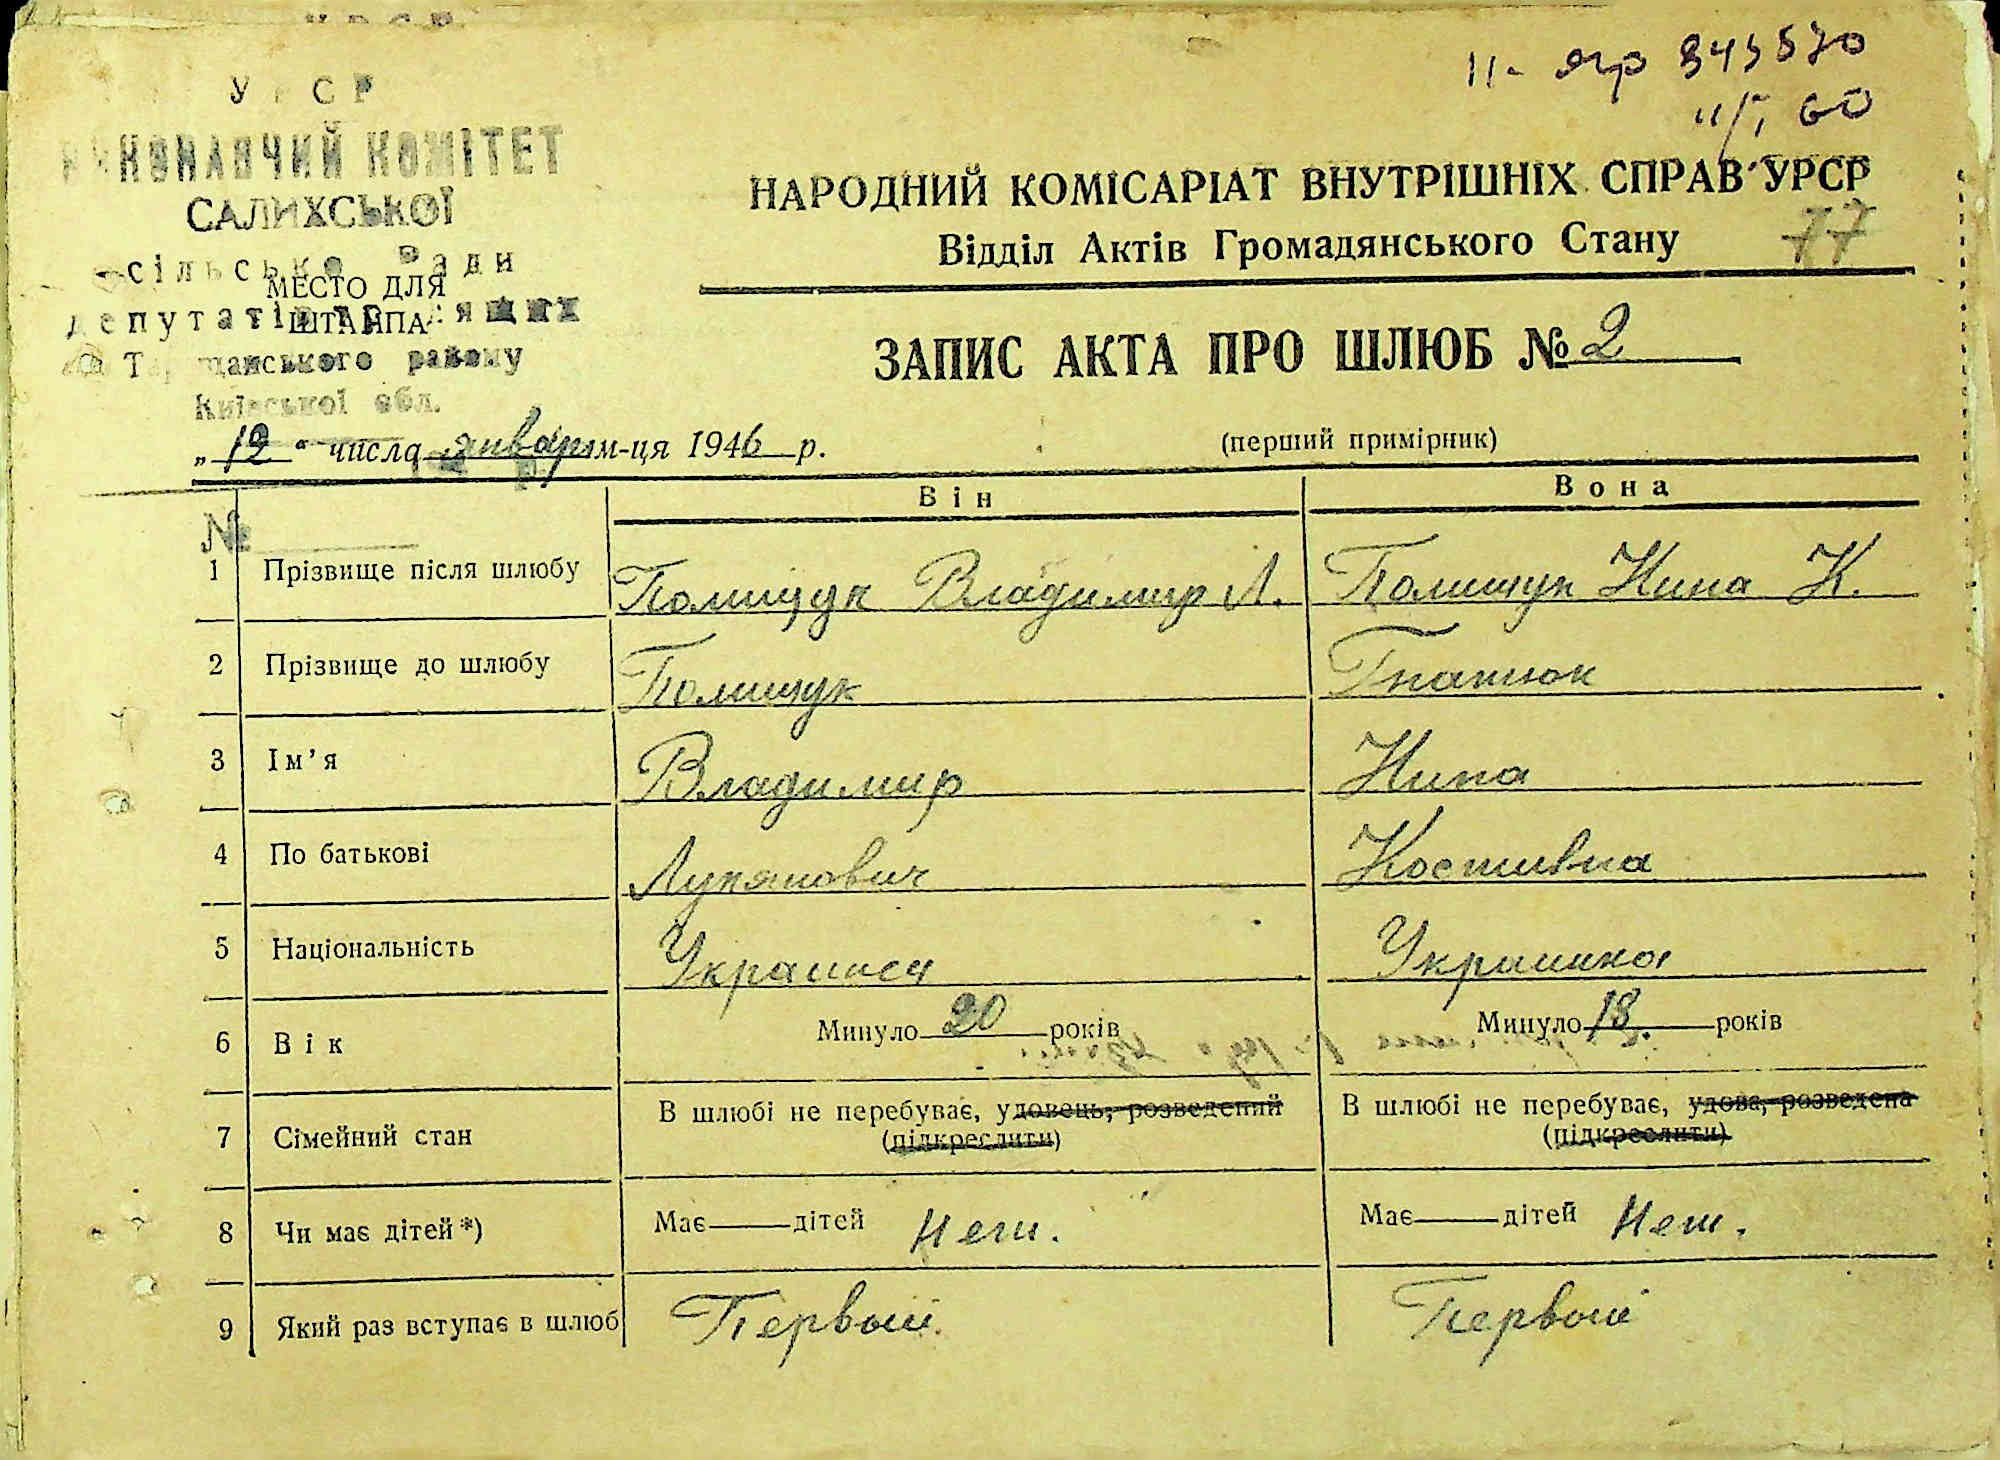 УРСР
ВИКОНАВЧИЙ КОМІТЕТ
САЛИХСЬКОЇ
сільської Ради
МЕСТО ДЛЯ
депутатів трудящих
ШТАМПА
Таращанського району
Київської обл.
№
11- яч 843570
11/I 60
НАРОДНИЙ КОМІСАРІАТ ВНУТРІШНІХ СПРАВ УРСР
Відділ Актів Громадянського Стану 77
ЗАПИС АКТА ПРО ШЛЮБ № 2
„12" числа январ м-ця 1946 р. (перший примірник)
Він Вона
1 Прізвище після шлюбу Полищук Владимир Л. Полищук Нина К.
2 Прізвище до шлюбу Полищук Гнатюк
3 Ім'я Владимир Нина
4 По батькові Лукянович Костивна
5 Національність Украинец Украинка
6 Вік Минуло 20 років Минуло 18. років
7 Сімейний стан В шлюбі не перебуває, удовець, розведений (підкреслити) В шлюбі не перебуває, удова, розведена (підкреслити)
8 Чи має дітей *) Має дітей Нет. Має дітей Нет.
9 Який раз вступає в шлюб Первый. Первый